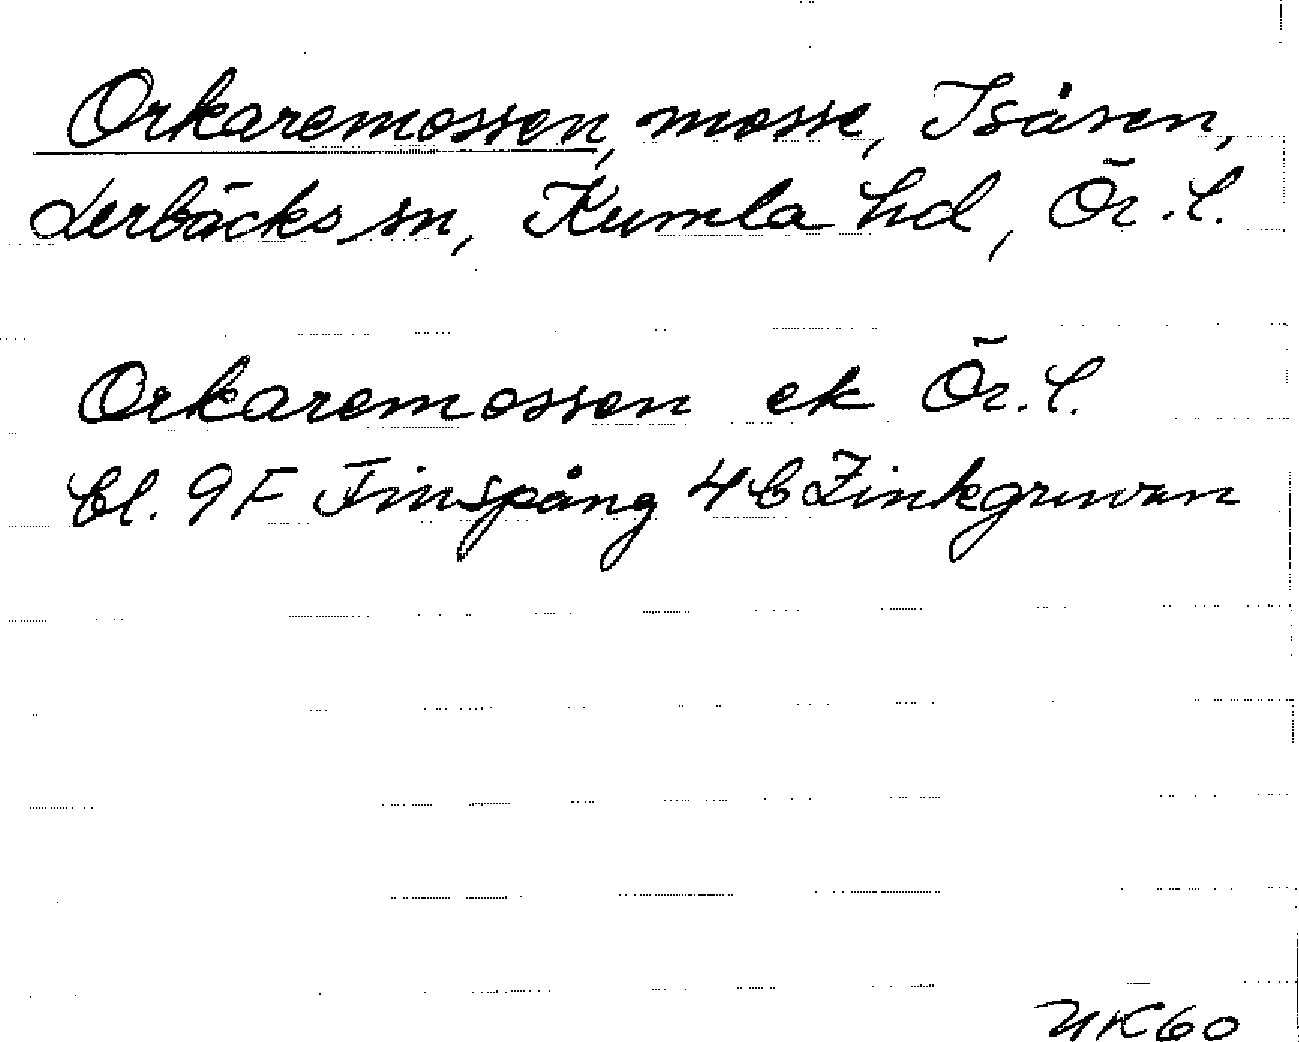 Orkaremossen, mosse, Isåsen,
Lerbäcks sn, Kumla hd, Ör. l.
Orkaremossen ek Ör. l.
bl. 9F Finspång 4b Zinkgruvan
NK60